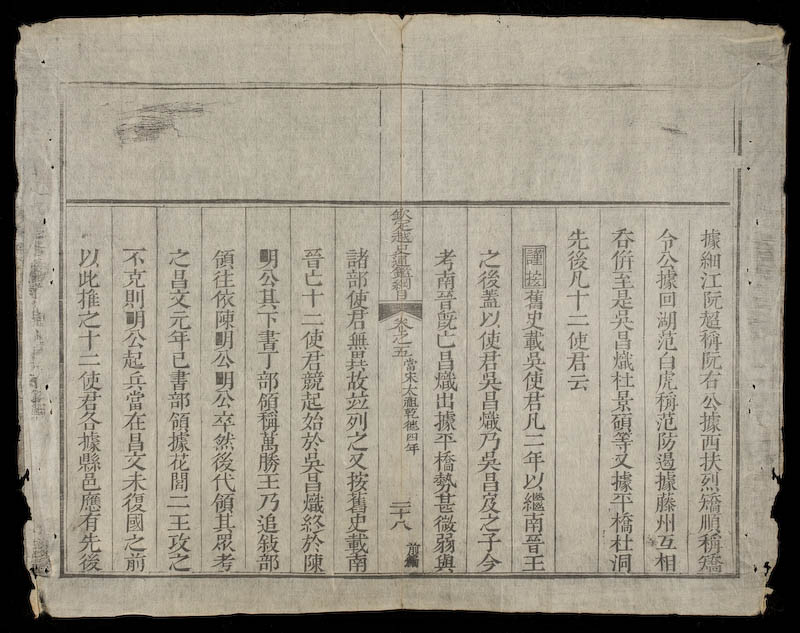 據細江阮超稱阮右公據西扶烈矯順稱矯
令公據回湖范白虎稱范防遏據藤州互相
吞併至是吳昌熾杜景碩等又據平橋杜洞
先後凡十二使君云
謹按舊史載吳使君凡二年以繼南晉王
之後蓋以使君吳昌熾乃吳昌岌之子今
考南晉既亡昌熾出據平橋勢甚微弱與
欽定越史通鑑綱目 卷之五 當宋太祖乾德四年 二十八 前編
諸部使君無異故竝列之又按舊史載南
晉亡十二使君競起始於吳昌熾終於陳
明公其下書丁部領稱萬勝王乃追敍部
領往依陳明公明公卒然後代領其眾考
之昌文元年已書部領據花閭二王攻之
不克則明公起兵當在昌文未復國之前
以此推之十二使君各據縣邑應有先後